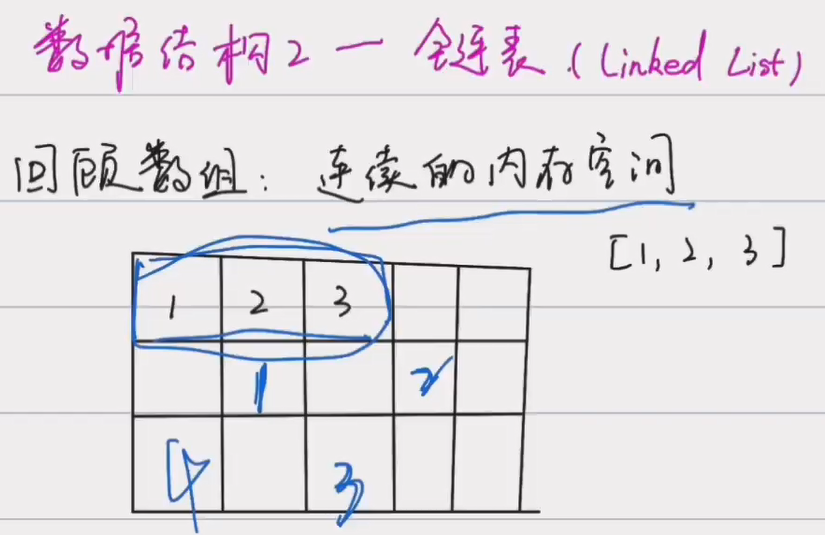 数据结构2 — 链表 (Linked List)
回顾数组: 连续的内存空间
[1, 2, 3]
1 2 3
1 2
4 3